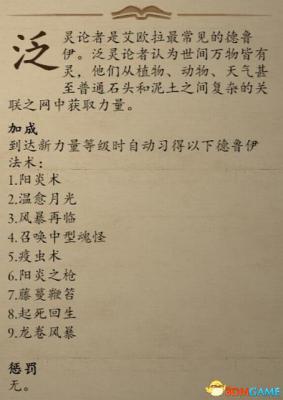 泛灵论者是艾欧拉最常见的德鲁
伊。泛灵论者认为世间万物皆有
灵，他们从植物、动物、天气甚
至普通石头和泥土之间复杂的关
联之网中获取力量。
加成
到达新力量等级时自动习得以下德鲁伊
法术：
1.阳炎术
2.温愈月光
3.风暴再临
4.召唤中型魂怪
5.疫虫术
6.阳炎之枪
7.藤蔓鞭笞
8.起死回生
9.龙卷风暴
惩罚
无。
3DMGAME